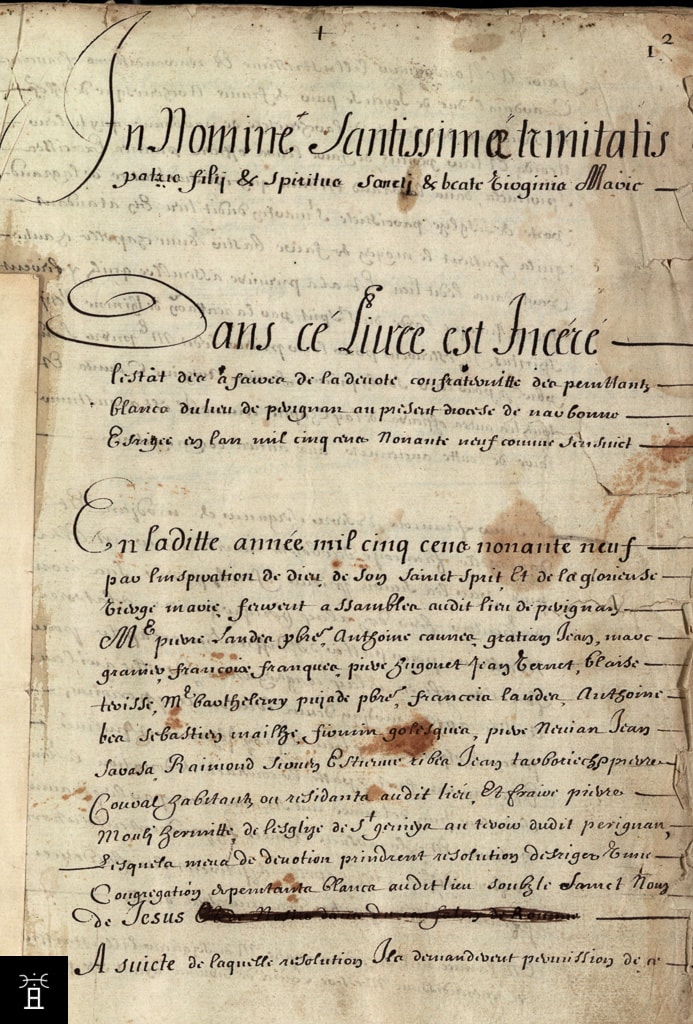 1 2
In Nomine Santissimæ trinitatis
patris filij & spiritus sancti & beate Virginis Marie
Dans cé Liure est Incéré
lestat des afaires de la deuote confraternitte des penitlantz
blancs du lieu de perignan au présent diocese de narbonne
Erigee en lan mil cinq cens Nonante neuf comme sensuict
En laditte année mil cinq cens nonante neuf
par linspiration de dieu de son sainct sprit, Et de la glorieuse
Vierge marie, feurent assambles audit lieu de perignan
Mr pierre Landes pbre, Anthoine caunes, gratian Jean, marc
granier, francois franques, piere hugonet Jean Vernet, blaise
teisse, Mr barthelemy pujade pbre, francois landes, Anthoine
bes sebastien mailhe, firmin golesques, piere Neuian Jean
sabasa, Raimond Estienne ribes Jean tarboriech pierre
Coural habitantz ou residants audit lieu, Et fraire pierre
Moulj hermitte, de leglize de St genieys au teroir dudit perignan,
Lesquels meus de deuotion prindrent resolution deriger Vne
Congregation de penitants blancs audit lieu soubz le Sainct Nom
de Jesus
A suicte de laquelle resolution Ils demanderent permission de ce